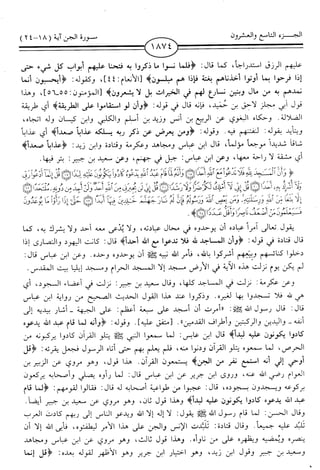 الجزء التاسع والعشرون
١٨٧٤
سورة الجن آية (١٨-٢٤)
عليهم الرزق استدراجاً، كما قال: ﴿فلما نسوا ما ذكروا به فتحنا عليهم أبواب كل شيء حتى
إذا فرحوا بما أوتوا أخذناهم بغتة فإذا هم مبلسون﴾ [الأنعام: ٤٤]، وكقوله: ﴿أيحسبون أنما
نمدهم به من مال وبنين نسارع لهم في الخيرات بل لا يشعرون﴾ [المؤمنون: ٥٥ـ٥٦]، وهذا
قول أبي مجلز لاحق بن حُميد، فإنه قال في قوله: ﴿وأن لو استقاموا على الطريقة﴾ أي طريقة
الضلالة. وحكاه البغوي عن الربيع بن أنس وزيد بن أسلم والكلبي وابن كيسان وله اتجاه،
ويتأيد بقوله: لنفتنهم فيه. وقوله: ﴿ومن يعرض عن ذكر ربه يسلكه عذاباً صعداً﴾ أي عذاباً
شاقاً شديداً موجعاً مؤلماً، قال ابن عباس ومجاهد وعكرمة وقتادة وابن زيد: ﴿عذاباً صعداً﴾
أي مشقة لا راحة معها، وعن ابن عباس: جبل في جهنم، وعن سعيد بن جبير: بئر فيها.
يقول تعالى آمراً عباده أن يوحدوه في محال عبادته، ولا يُدعى معه أحد ولا يشرك به، كما
قال قتادة في قوله: ﴿وأن المساجد لله فلا تدعوا مع الله أحداً﴾ قال: كانت اليهود والنصارى إذا
دخلوا كنائسهم وبيعهم أشركوا بالله، فأمر الله نبيه ﷺ أن يوحدوه وحده. وعن ابن عباس قال:
لم يكن يوم نزلت هذه الآية في الأرض مسجد إلا المسجد الحرام ومسجد إيليا بيت المقدس.
وعن عكرمة: نزلت في المساجد كلها، وقال سعيد بن جبير: نزلت في أعضاء السجود، أي
هي لله فلا تسجدوا بها لغيره. وذكروا عند هذا القول الحديث الصحيح من رواية ابن عباس
قال: قال رسول الله ﷺ: «أمرت أن أسجد على سبعة أعظم: على الجبهة ـ أشار بيديه إلى
أنفه ـ واليدين والركبتين وأطراف القدمين». [متفق عليه]. وقوله: ﴿وأنه لما قام عبد الله يدعوه
كادوا يكونون عليه لبداً﴾ قال ابن عباس: لما سمعوا النبي ﷺ يتلو القرآن كادوا يركبونه من
الحرص، لما سمعوه يتلو القرآن ودنوا منه، فلم يعلم بهم حتى أتاه الرسول فجعل يقرئه: ﴿قل
أوحي إلي أنه استمع نفر من الجن﴾ يستمعون القرآن. هذا قول، وهو مروي عن الزبير بن
العوام رضي الله عنه، وروى ابن جرير عن ابن عباس قال: لما رأوه يصلي وأصحابه يركعون
بركوعه ويسجدون بسجوده، قال: عجبوا من طواعية أصحابه له قال: فقالوا لقومهم: ﴿لما قام
عبد الله يدعوه كادوا يكونون عليه لبداً﴾ وهذا قول ثان، وهو مروي عن سعيد بن جبير أيضاً.
وقال الحسن: لما قام رسول الله ﷺ يقول: لا إله إلا الله ويدعو الناس إلى ربهم كادت العرب
تلبد عليه جميعاً. وقال قتادة: تلبدت الإنس والجن على هذا الأمر ليطفئوه، فأبى الله إلا أن
ينصره ويمضيه ويظهره على من ناوأه. وهذا قول ثالث، وهو مروي عن ابن عباس ومجاهد
وسعيد بن جبير وقول ابن زيد، وهو اختيار ابن جرير وهو الأظهر لقوله بعده: ﴿قل إنما